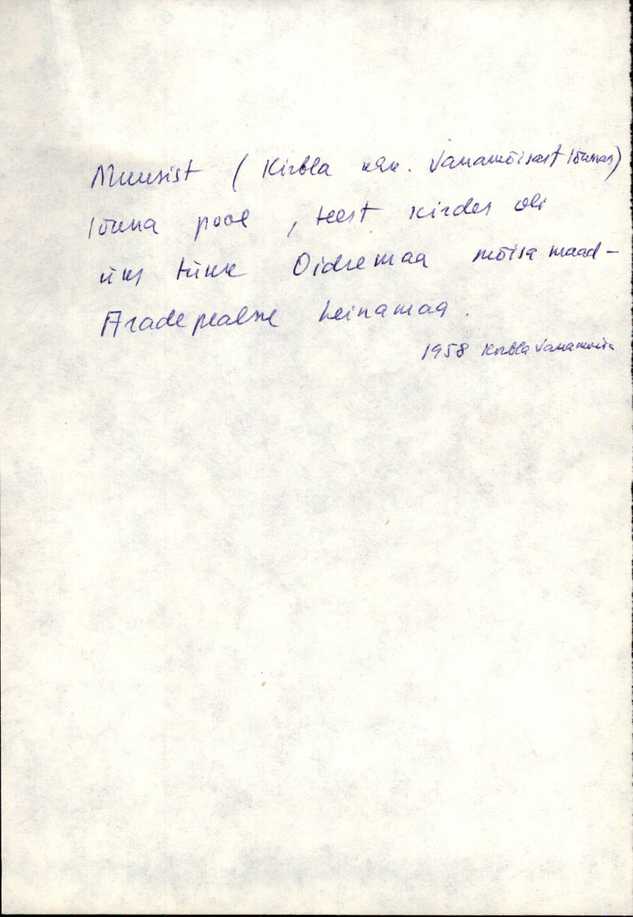 Muusist (Kirbla näk. Vanamõisast lõunas)
lõuna pool, teest kirdes oli
üks tükk Oidremaa mõisa maad -
Aradepealse heinamaa.
1958 Kirbla Vanamõisa